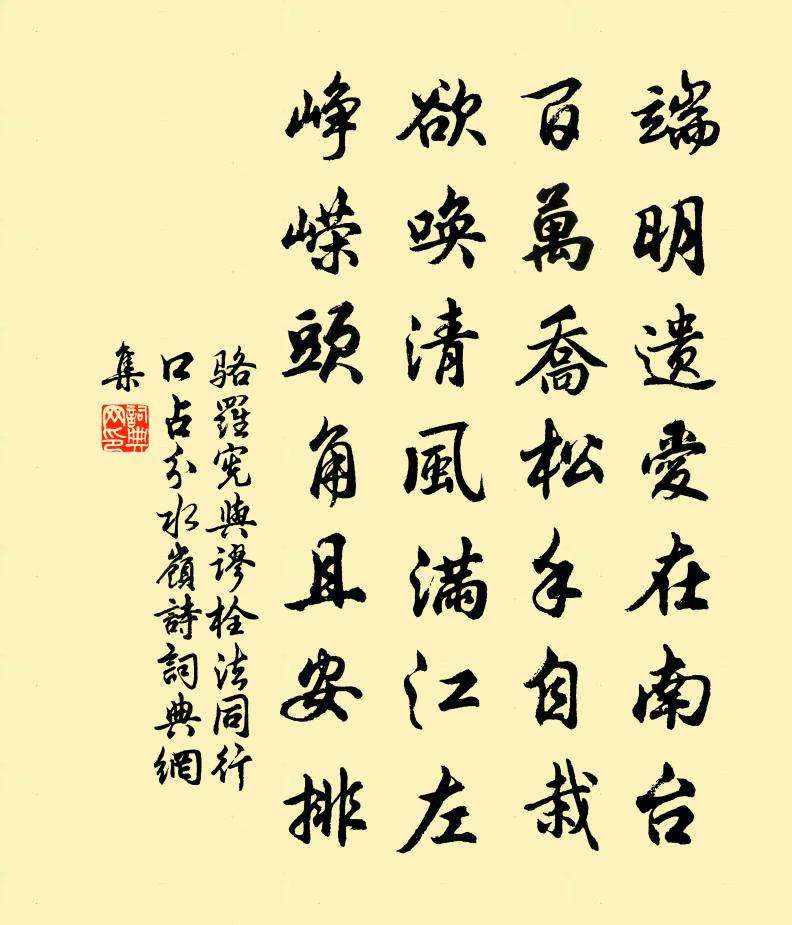 端明遺愛在南台
百萬喬松手自栽
欲喚清風滿江左
崢嶸頭角且安排
駱羅憲與謬栓法同行
口占分水嶺詩詞典網
集
詞典網印